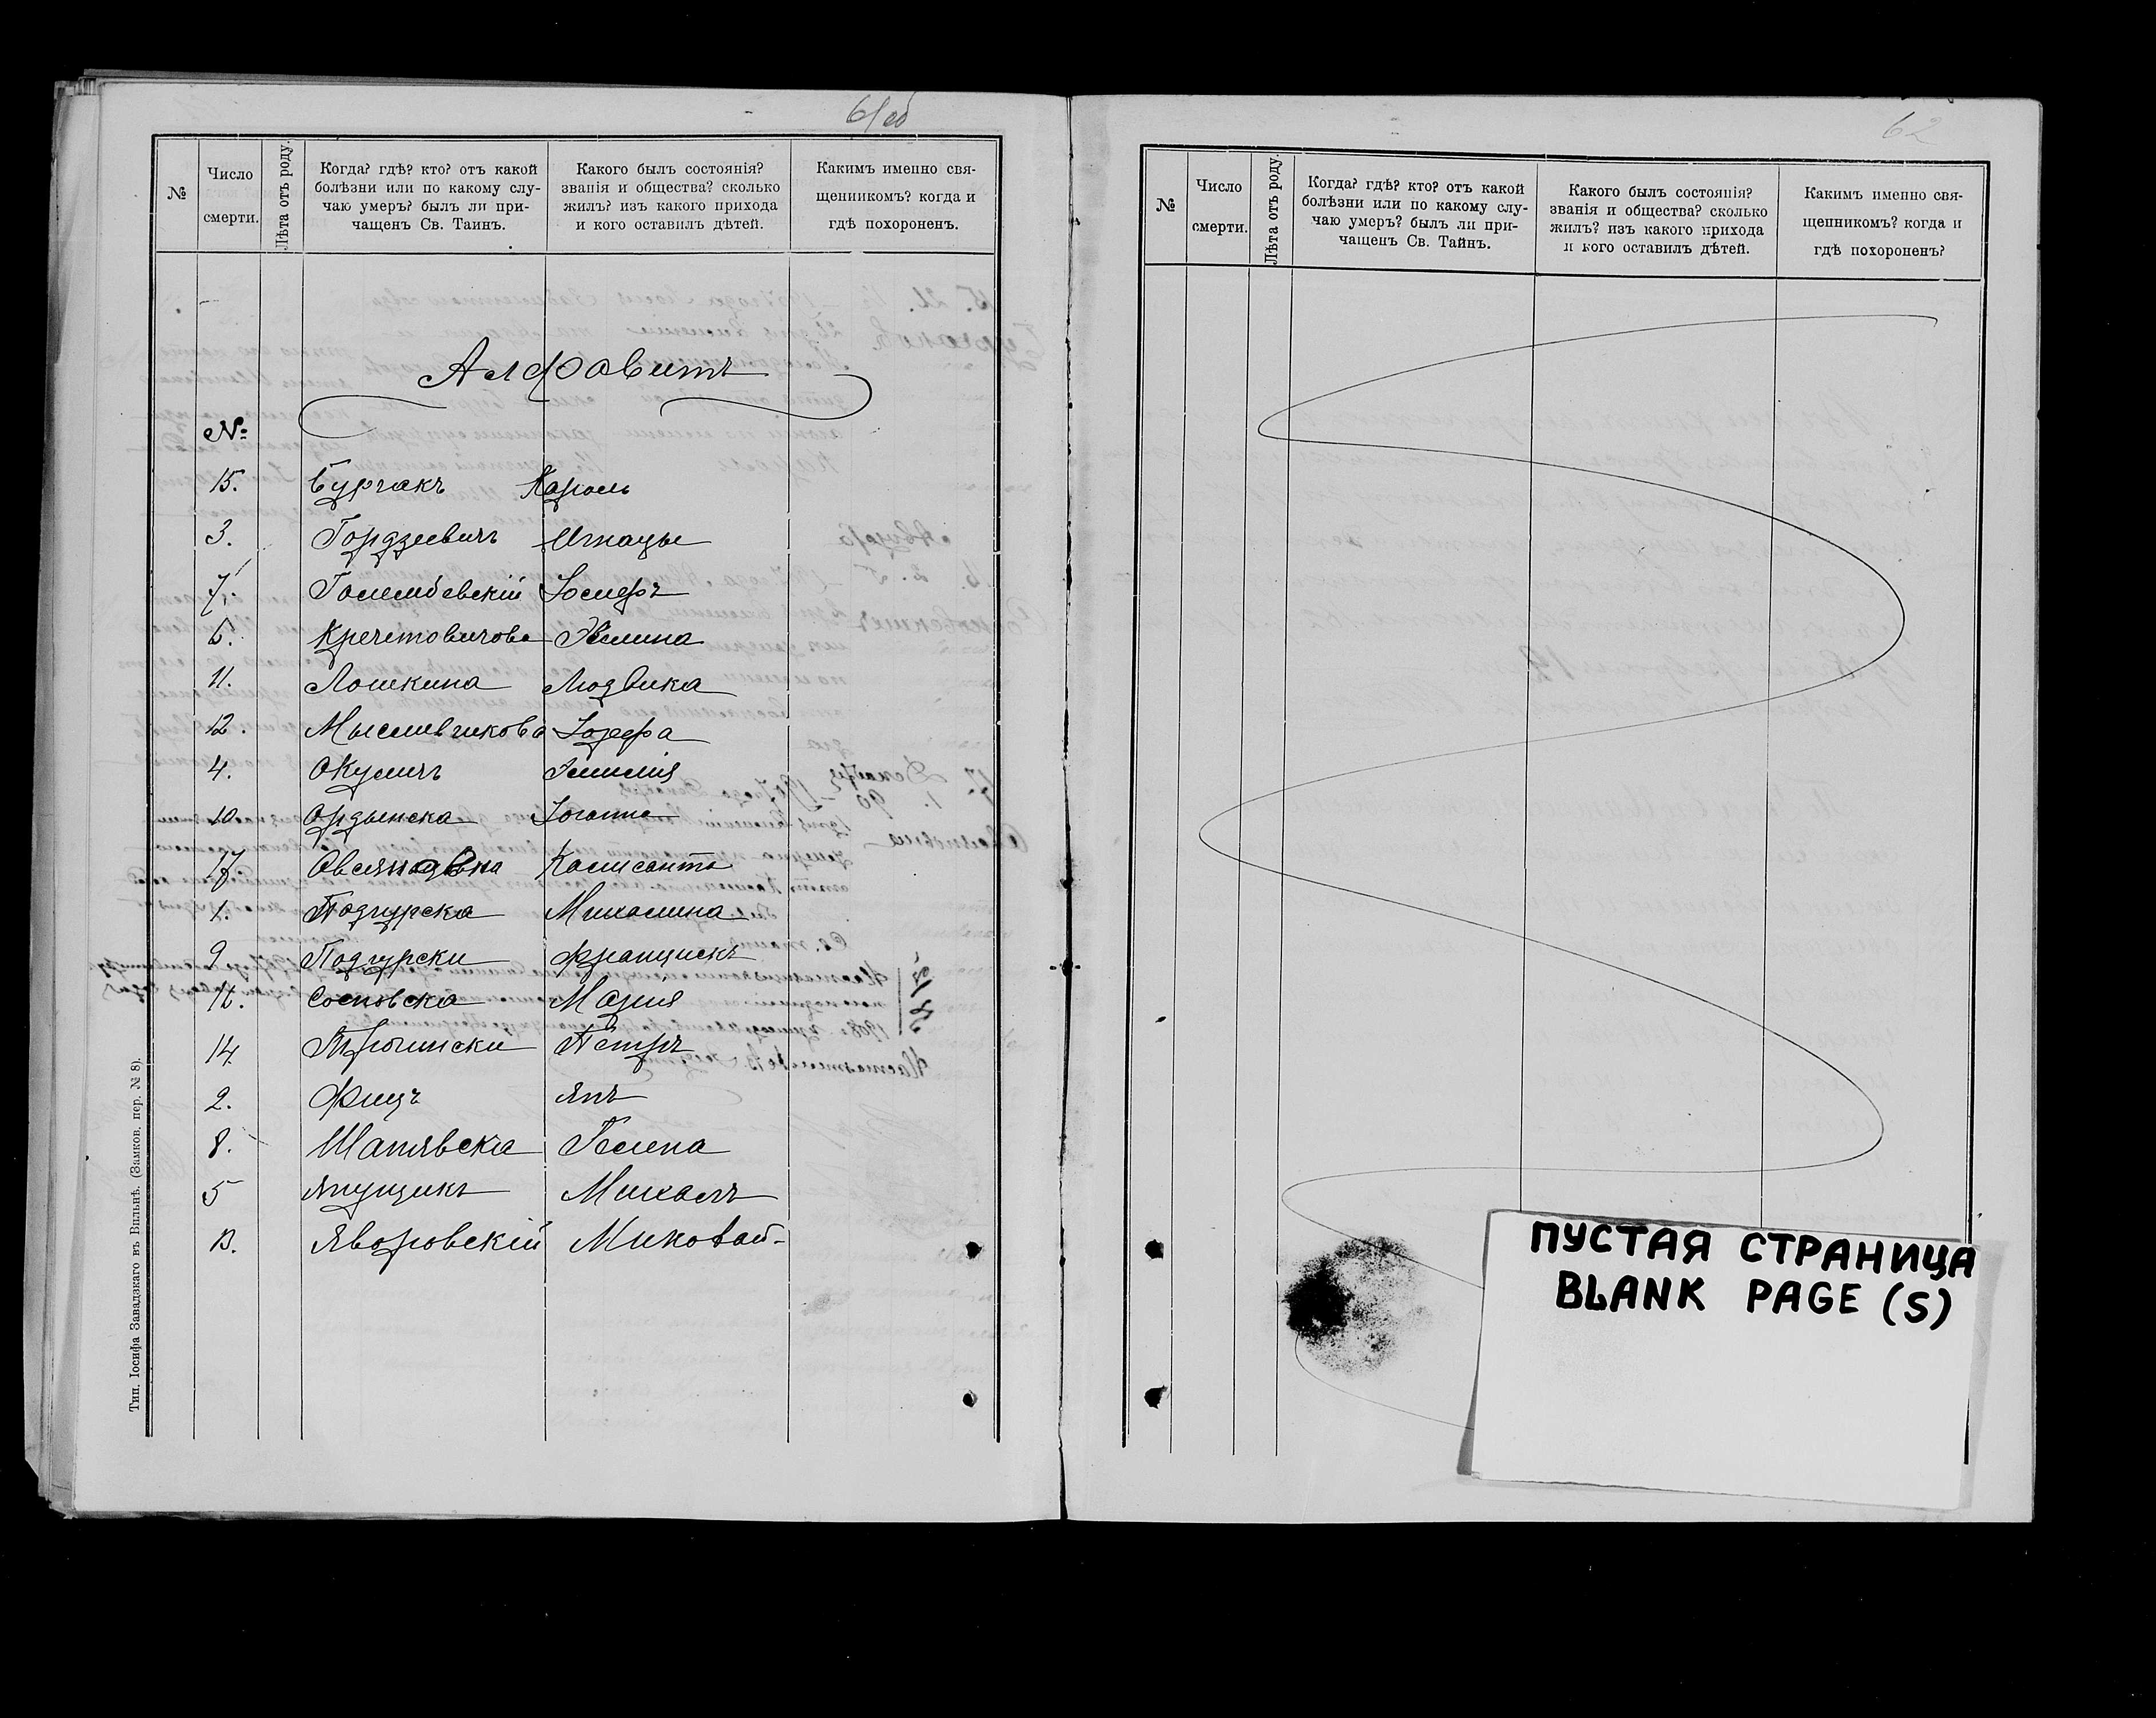 61об
№
Число
смерти.
Лѣта отъ роду.
Когда? гдѣ? кто? отъ какой
болѣзни или по какому слу-
чаю умеръ? былъ ли при-
чащенъ Св. Таинъ.
Какого былъ состоянія?
званія и общества? сколько
жилъ? изъ какого прихода
и кого оставилъ дѣтей.
Какимъ именно свя-
щенникомъ? когда и
гдѣ похороненъ.
Алфавитъ
№
15. Бурчакъ Кароль
3. Гордзевичъ Игнацы
7. Голембевскій Іосифъ
6. Кречетовичова Эмилия
11. Лошкина Людвика
12. Мысливчикова Іозефа
4. Окуличъ Эмилія
10. Ордынска Іоанна
17. Овсяновна Констант
1. Подгурска Михалина
9 Подгурски Францискъ
16. Сосновска Марія
14 Петръ
2. Фицъ Янъ
8. Шапявска Гелена
5 Япущикъ Михалъ
13. Яворовскій Миколай
Тип. Іосифа Завадзкаго въ Вильнѣ. (Замков. пер. № 8).
62
№
Число
смерти.
Лѣта отъ роду.
Когда? гдѣ? кто? отъ какой
болѣзни или по какому слу-
чаю умеръ? былъ ли при-
чащенъ Св. Тайнъ.
Какого былъ состоянія?
званія и общества? сколько
жилъ? изъ какого прихода
и кого оставилъ дѣтей.
Какимъ именно свя-
щенникомъ? когда и
гдѣ похороненъ?
ПУСТАЯ СТРАНИЦА
BLANK PAGE (S)